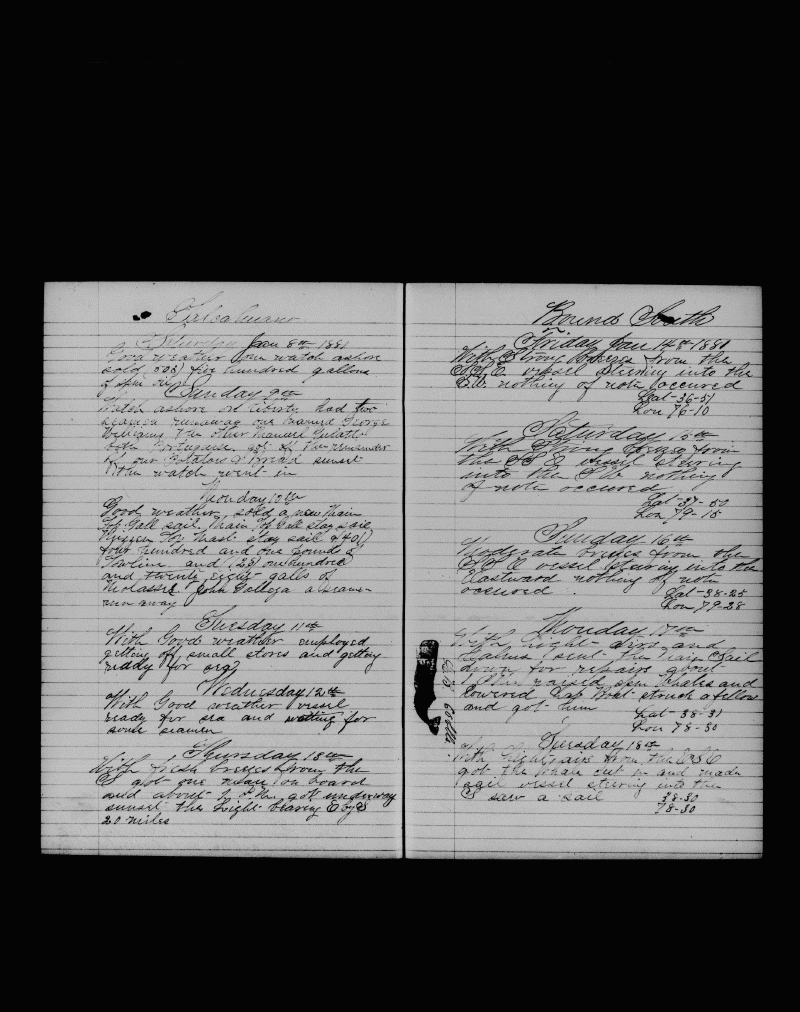 Talcahuano
Saturday Jan 8th 1881
Good weather one watch ashore
sold 500) five hundred gallons
of spm oil
Sunday 9th
Watch ashore on liberty had two
seamen runaway one named George
Williams the other named
both Portuguese got of the remainder
of our Potatoes & Bread sunset
the watch went in
Monday 10th
Good weather, sold a new Main
Top Gall sail, Main Top Gall stay sail
Mizzen Top Mast stay sail & 401)
four hundred and one pounds of
Towline and (128) one hundred
and twenty eight galls of
Molasses John Gallega a Seaman
ran away
Tuesday 11th
With Good weather employed
getting off small stores and getting
ready for sea
Wednesday 12th
With Good weather vessel
ready for sea and waiting for
some seamen
Thursday 13th
With fresh breezes from the
S got one man on board
and about got underway
sunset the Light bearing E by S
20 miles
Bound South
Friday Jan 14th 1881
With Strong Breezes from the
S.S.E vessel steering into the
S.W. nothing of note occured
Lat-36-51
Lon 76-10
Saturday 15th
With Strong breezes from
the S.S.E vessel steering
into the S.W. nothing
of note occured
Lat-37-50
Lon 79-15
Sunday 16th
Moderate breezes from the
S.S.E vessel steering into the
Eastward nothing of note
occured
Lat-38-25
Lon 79-28
Monday 17th
With light airs and
calms sent the Main Sail
down for repairs about
raised spm Whales and
lowered Boat struck a fellow
and got him
Lat-38-31
Lon 78-50
Tuesday 18th
With light airs from the E.S.E
got the whale cut in and made
sail vessel steering into the
S saw a sail
38-30
78-50